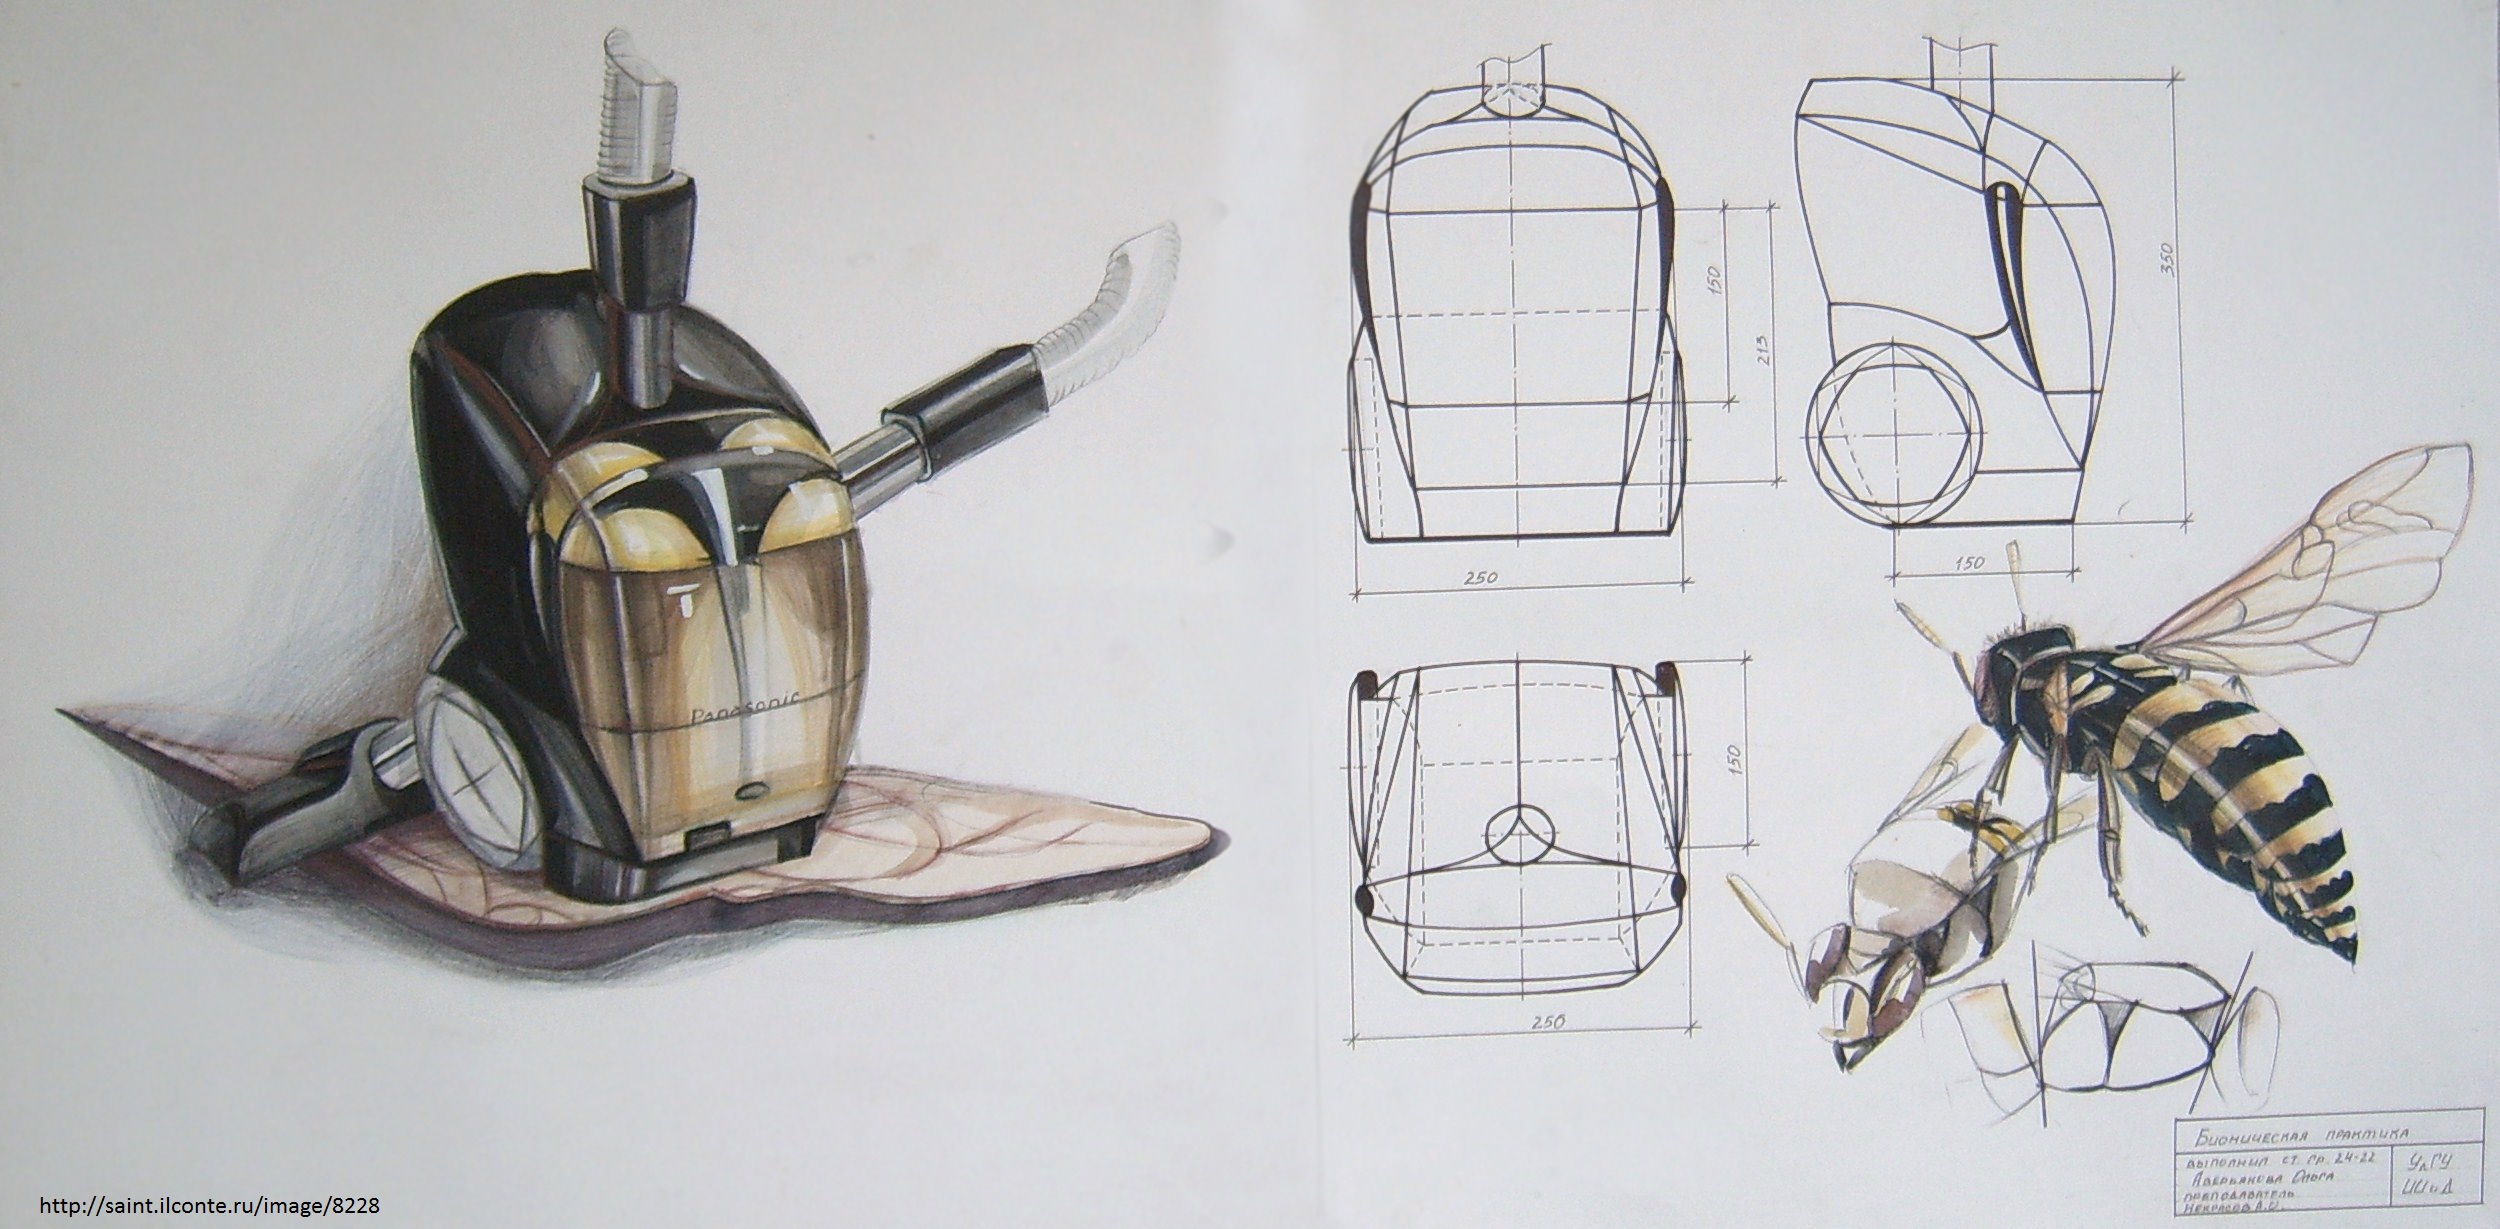 Panasonic
150
213
250
350
150
150
250
Бионическая практика
выполнил ст. гр. 24-22
Авербянова Ольга
преподаватель
Некрасов А.И.
УдГУ
ИИиД
http://saint.ilconte.ru/image/8228